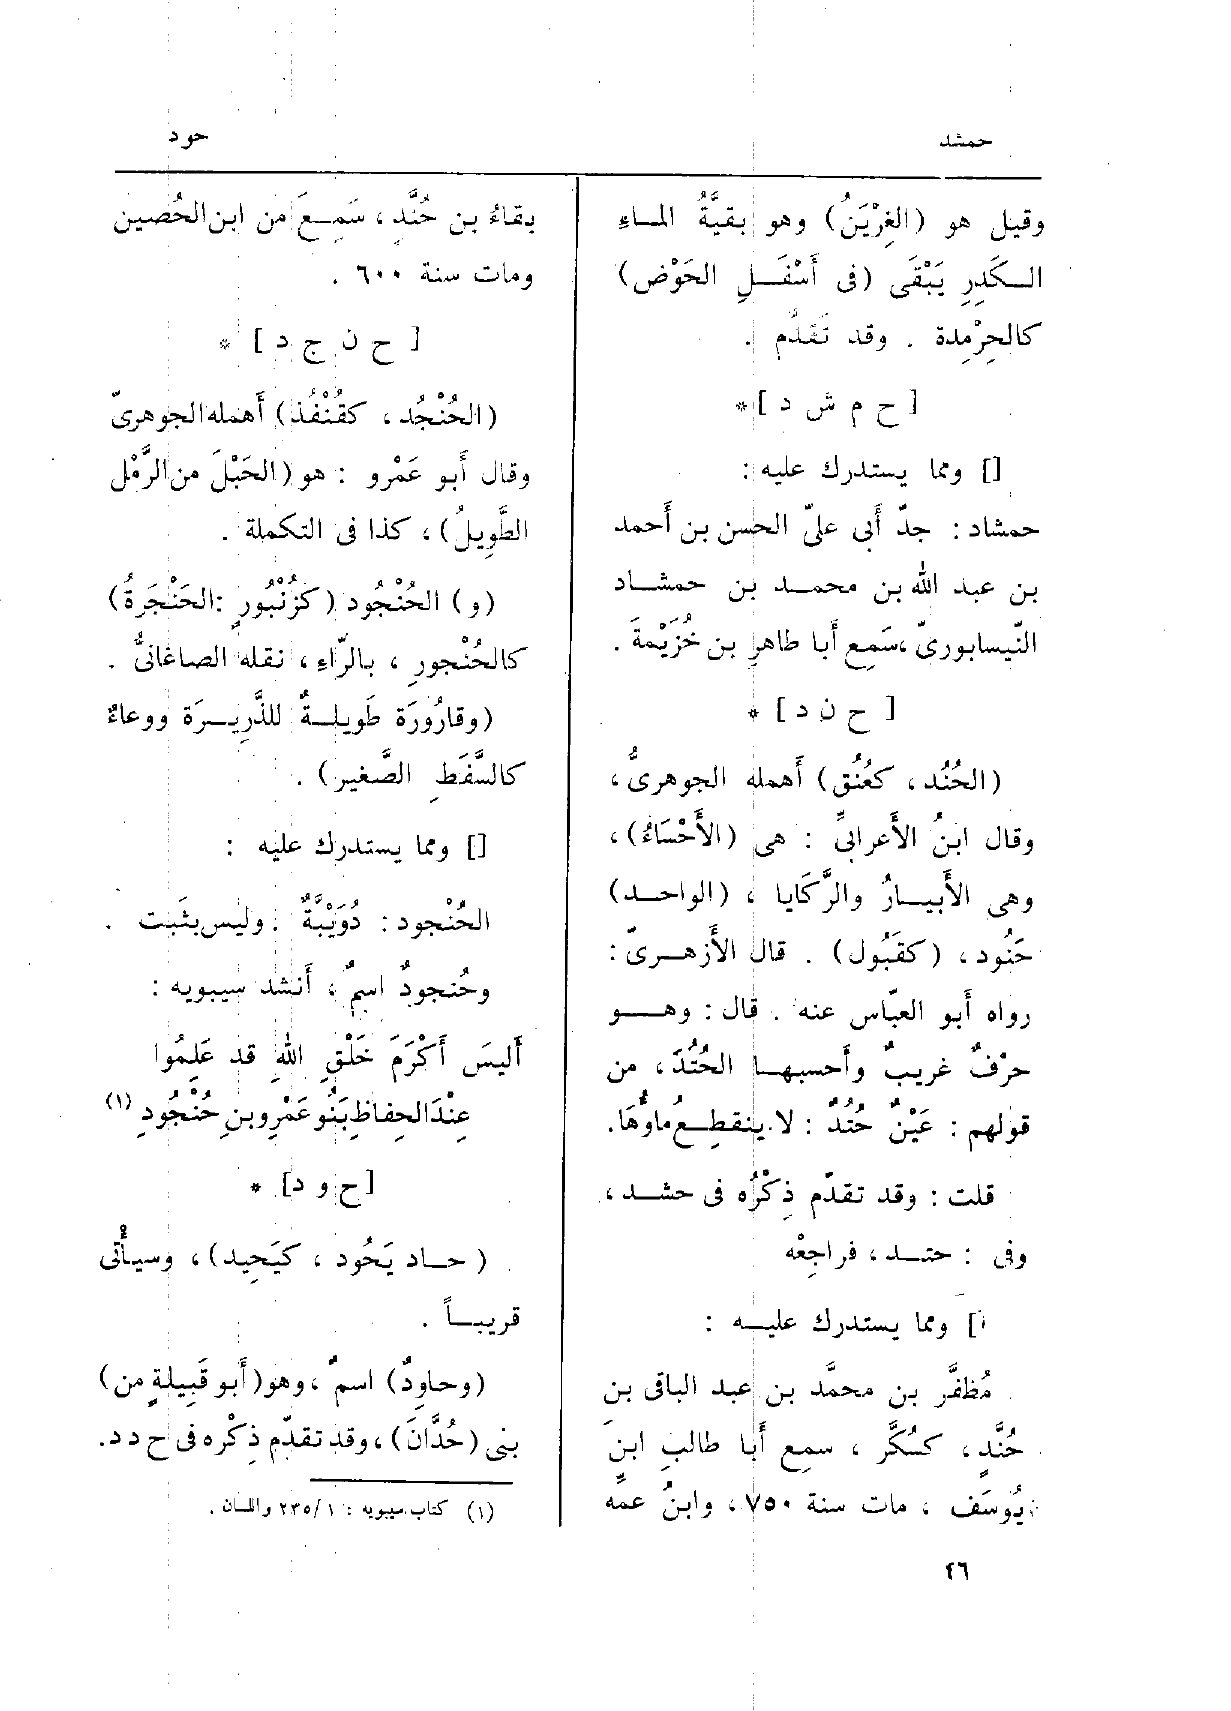 حمشد
حود
وقيل هو (الغِرْيَنُ) وهو بقيَّةُ المـاءِ
الـكَدِرِ يَبْقَى (فى أَسْفَـلِ الحَوْض)
كالحِرْمِدة . وقد تَقدّم .
[ ح م ش د ]*
[] ومما يستدرك عليه :
حمشاد : جدّ أَبى علىّ الحسن بن أَحمد
بن عبد الله بن محمـد بن حمشـاد
النّيسابورىّ ، سَمِع أَبا طاهرِ بن خُزَيْمةَ .
[ ح ن د ] *
(الحُنُد ، كعُنُق) أَهمله الجوهرىُّ ،
وقال ابنُ الأَعرابىِّ : هى (الأَحْسَاءُ) ،
وهى الأَبيـارُ والرَّكَايا ، (الواحـد)
حَنُود ، (كقَبُول) . قال الأَزهـرىّ :
رواه أَبو العبّاس عنه . قال : وهـو
حرْفٌ غريبٌ وأَحسبهـا الحُتُدَ ، من
قولهم : عَيْنٌ حُتُدٌ : لا ينقطِـعُ ماؤُهَا.
قلت : وقد تقدّم ذِكْرُه فى حشـد ،
وفى : حتـد ، فراجِعْه
[] ومما يستدرك عليـه :
مُظفَّر بن محمَّد بن عبد الباقى بن
حُنَّدٍ ، كسُكَّر ، سمع أَبا طالبِ ابنَ
يُوسَف ، مات سنة ٧٥٠ ، وابنُ عمِّه
بقاءُ بن حُنَّد ، سَمِـعَ من ابن الحُصين
ومات سنة ٦٠٠ .
[ ح ن ج د ] *
(الحُنْجُد ، كقُنْفُذ) أَهمله الجوهرىّ
وقال أَبو عَمْرو : هو (الحَبْلَ من الرَّمْل
الطَّوِيلُ) ، كذا فى التكملة .
(و) الحُنْجُود (كزُنْبُورٍ : الحَنْجَرةُ)
كالحُنْجورِ ، بالرّاءِ ، نقله الصاغانىُّ .
(وقارُورَة طَويلـةٌ للذَّرِيـرَة ووعاءٌ
كالسَّفَطِ الصَّغير) .
[] ومما يستدرك عليه :
الحُنْجود : دُوَيْبَّةٌ . وليس بثَبت .
وحُنجودٌ اسمٌ ، أَنشد سيبويه :
أَليسَ أَكْرَمَ خَلْقِ اللهِ قد عَلِمُوا
عِنْدَ الحِفاظِ بَنُو عَمْرِو بنِ حُنْجُودِ (١)
[ ح و د ] *
(حـاد يَحُود ، كيَحِيد) ، وسيأْتى
قريبـاً .
(وحاوِدٌ) اسمٌ ، وهو (أَبو قَبِيلةٍ من)
بنى (حُدَّانَ) ، وقد تقدّم ذِكْره فى ح د د.
(١) كتاب سيبويه : ٢٣٥/١ واللسان .
٤٦